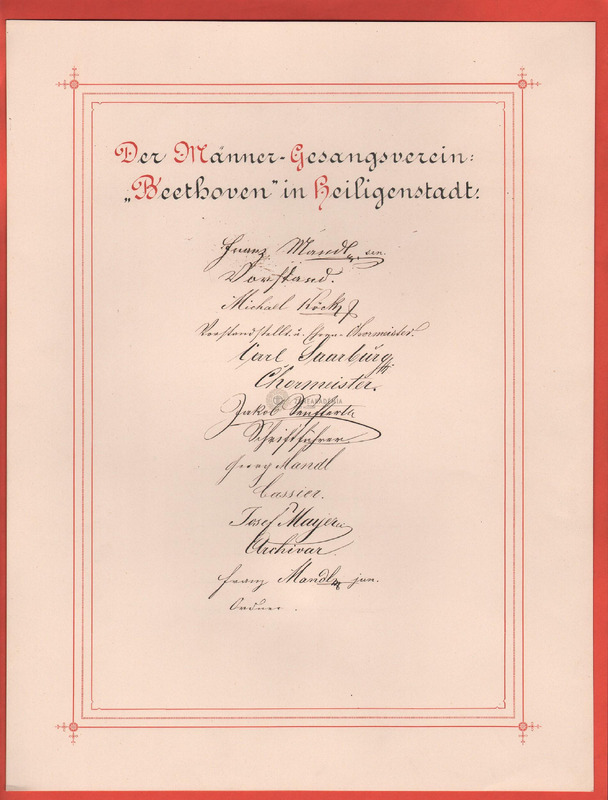 Der Männer-Gesangsverein:
„Beethoven" in Heiligenstadt:
Franz Mandl sen.
Vorstand.
Michael Köck
Vorstandstellv. u. Chormeister.
Carl Saarburg
Chormeister.
Jakob
Schriftführer
Georg Mandl
Cassier.
Josef Mayer
Archivar.
Franz Mandl jun.
Ordner.